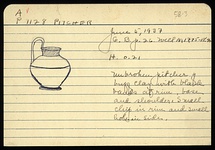 A
P 1128 PITCHER
June 5, 1937
H. 0.21
Unbroken pitcher of
buff clay with black
bands at rim, base
and shoulder. Small
chip in rim and small
hole in side.